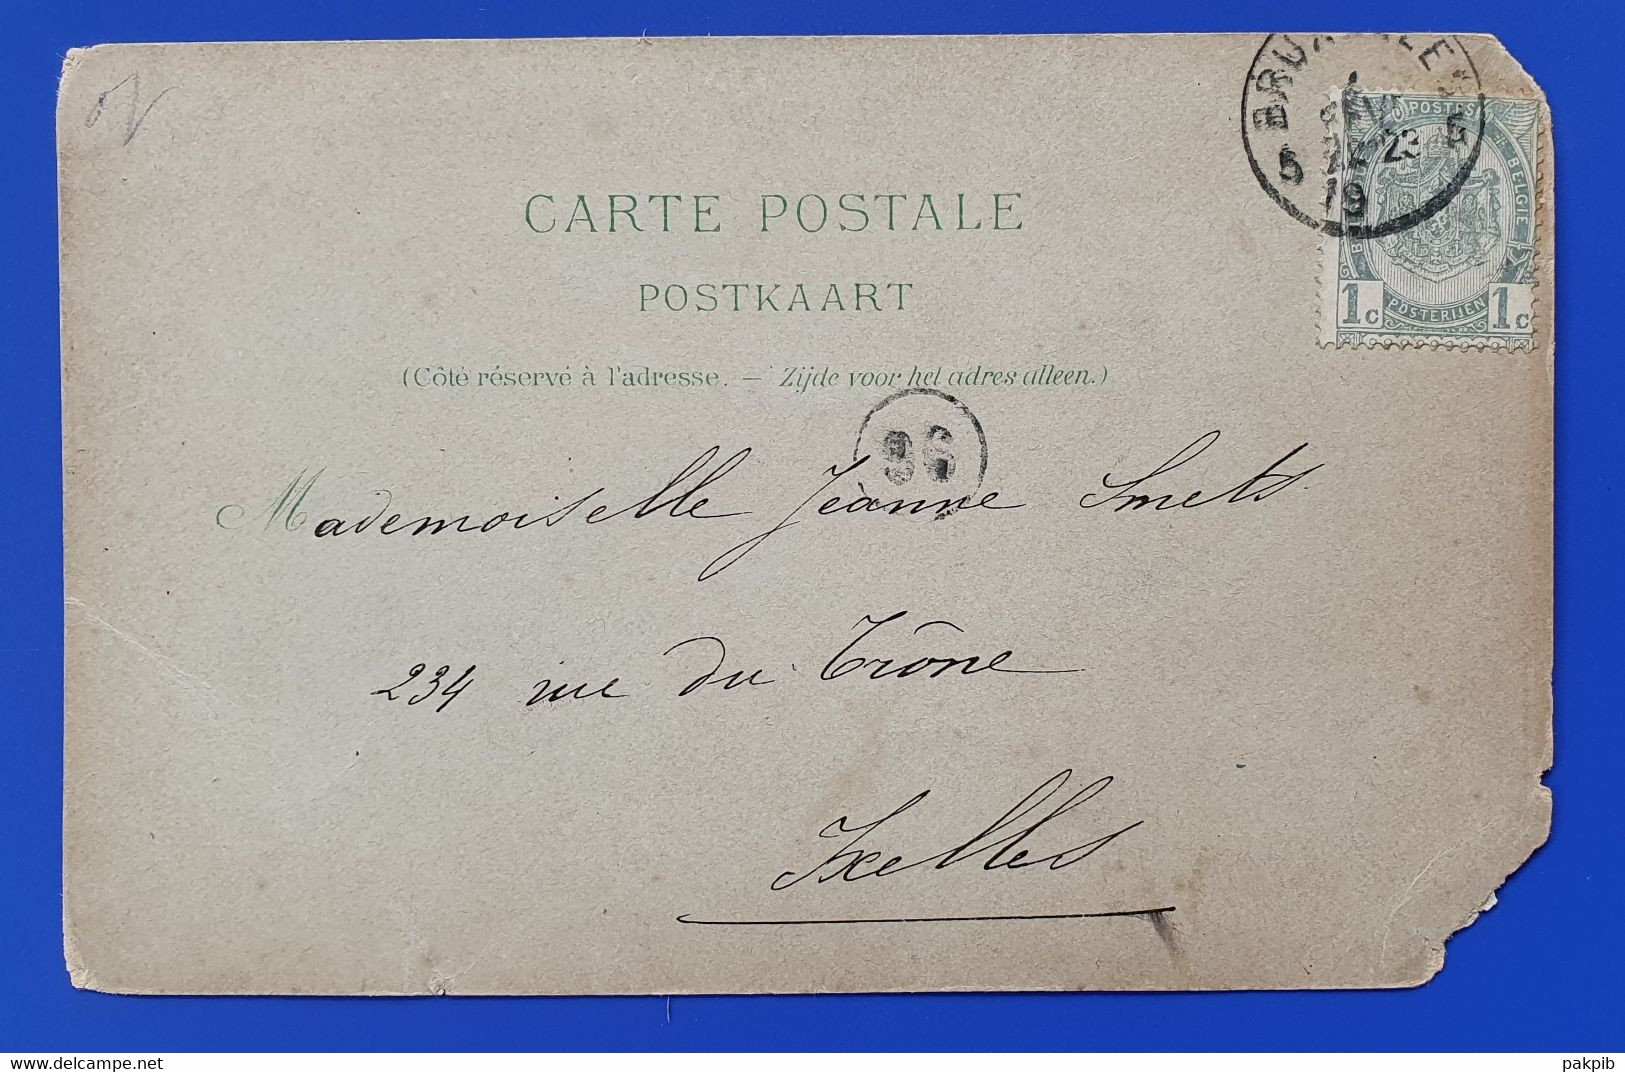 CARTE POSTALE
POSTKAART
(Côté réservé à l'adresse. — Zijde voor het adres alleen.)
5 5
23
19
POSTES
BELGIE
1c POSTERIJEN 1c
Mademoiselle Jeanne Smets
234 rue du Trône
Ixelles
delcampe.net
pakpib